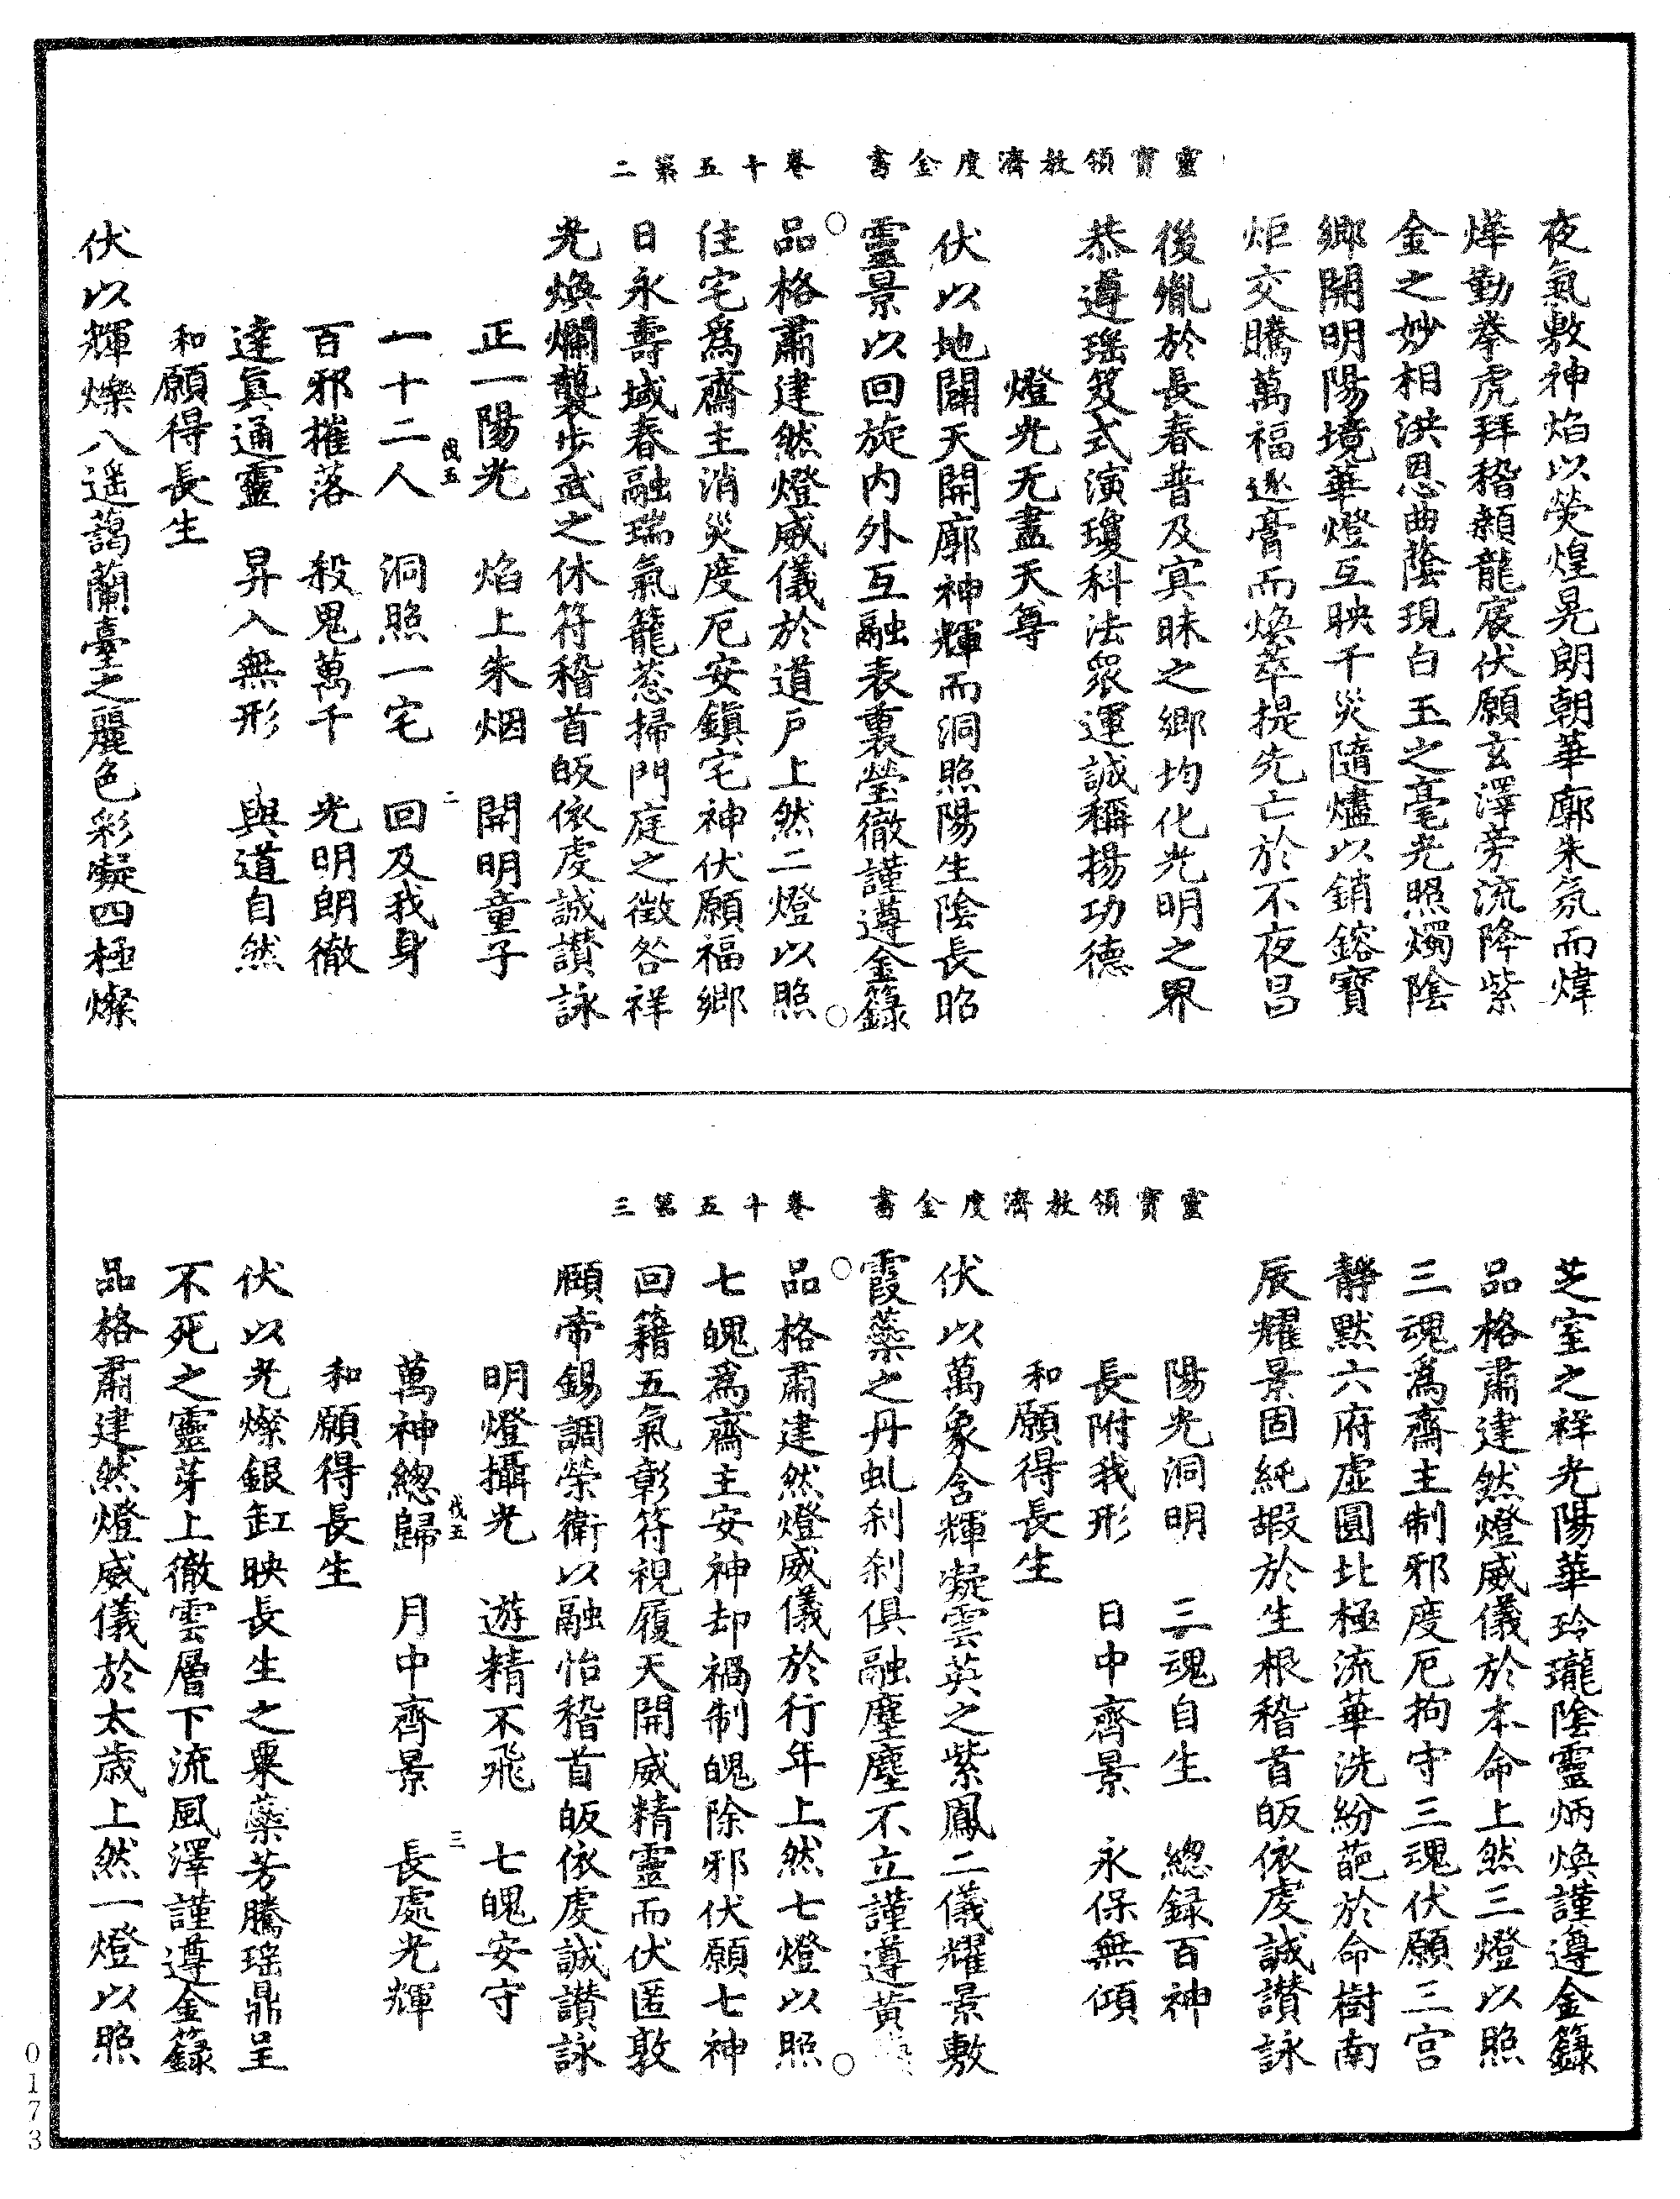 靈寶領教濟度金書　卷十五第二
夜氣敷神焰以熒煌晃朗朝華廓朱氛而煒
燁勤拳虎拜稽顙龍宸伏願玄澤旁流降紫
金之妙相洪恩曲蔭現白玉之毫光照燭陰
鄉開明陽境華燈互映千災隨燼以銷鎔寳
炬交騰萬福逐膏而煥萃提先亡於不夜昌
後胤於長春普及冥昧之鄉均化光明之界
恭遵瑶笈式演瓊科法眾運誠稱揚功德
燈光无盡天尊
伏以地闢天開廓神輝而洞照陽生陰長昭
靈景以回旋内外互融表裏瑩徹謹遵金籙
品格肅建然燈威儀於道戶上然二燈以照
住宅爲齋主消災度厄安鎮宅神伏願福鄉
日永壽域春融瑞氣籠葱掃門庭之徵咎祥
光煥爛襲步武之休符稽首皈依虔誠讃詠
正一陽光　焰上朱烟　開明童子
一十二人　洞照一宅　回及我身
百邪摧落　殺鬼萬千　光明朗徹
達真通靈　昇入無形　與道自然
和願得長生
伏以輝爍八遥藹蘭臺之麗色彩凝四極燦
靈寶領教濟度金書　卷十五第三
芝室之祥光陽華玲瓏陰靈炳煥謹遵金籙
品格肅建然燈威儀於本命上然三燈以照
三魂爲齋主制邪度厄拘守三魂伏願三宮
靜默六府虚圓北極流華洗紛葩於命樹南
辰耀景固純嘏於生根稽首皈依虔誠讃詠
陽光洞明　三魂自生　總録百神
長附我形　日中齊景　永保無傾
和願得長生
伏以萬象含輝凝雲英之紫鳳二儀耀景敷
霞蘂之丹虬刹刹俱融塵塵不立謹遵黄
品格肅建然燈威儀於行年上然七燈以照
七魄爲齋主安神却禍制魄除邪伏願七神
回籍五氣彰符視履天開威精靈而伏匿敦
頤帝錫調榮衛以融怡稽首皈依虔誠讃詠
明燈攝光　遊精不飛　七魄安守
萬神總歸　月中齊景　長處光輝
和願得長生
伏以光燦銀缸映長生之粟藥芳騰瑶鼎呈
不死之靈芽上徹雲層下流風澤謹遵金籙
品格肅建然燈威儀於太歲上然一燈以照
0173